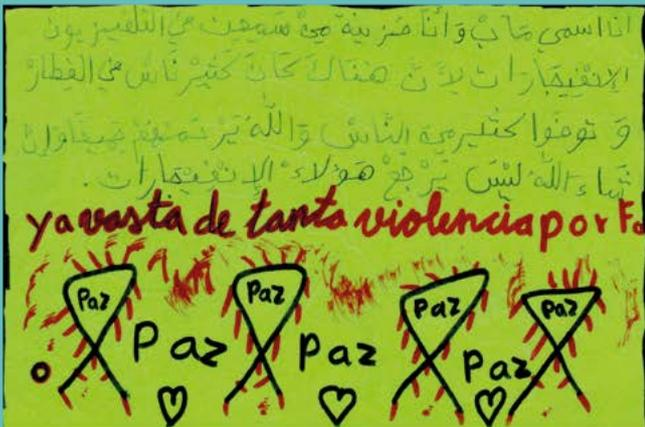 أنا اسمي وأنا حزينة سمعت في التلفيزيون
الإنفيجارات لأن هناك كان كثير ناس في القطار
و توفوا كثير من الناس والله يرحمهم جميعا وإن
شاء الله ليس يرجع هؤلاء الإنفيجارات.
ya vasta de tanta violencia por Fa
Paz Paz Paz Paz
Paz Paz Paz